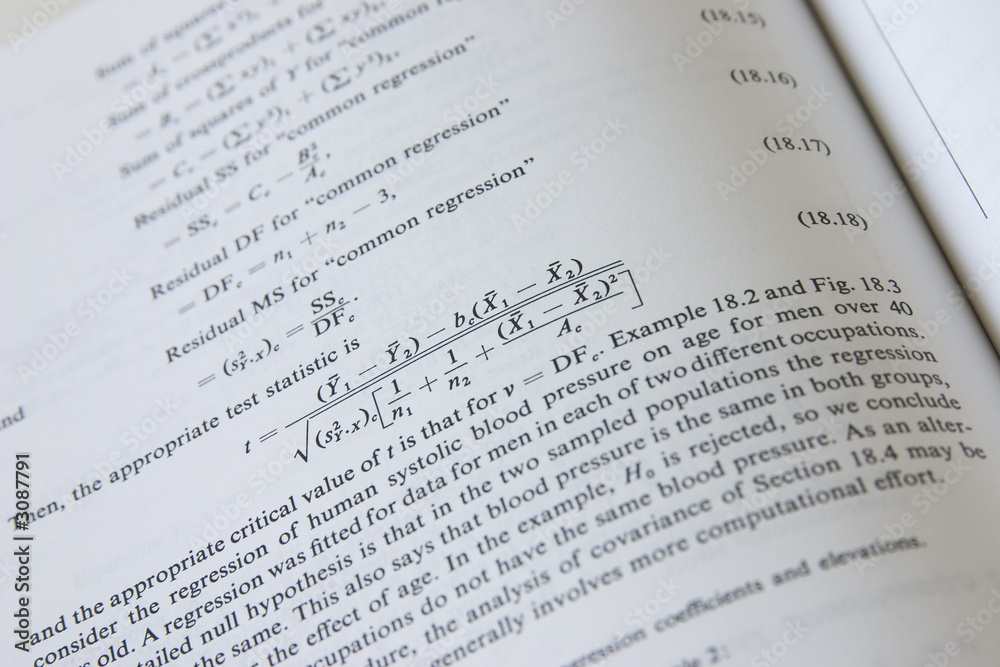 Sum of squares for
= A_c = (Σ x²)₁ + (Σ x²)₂, (18.15)
Sum of crossproducts for
= B_c = (Σ xy)₁ + (Σ xy)₂,
Sum of squares of Y for "common regression"
= C_c = (Σ y²)₁ + (Σ y²)₂, (18.16)
Residual SS for "common regression"
= SS_c = C_c − B_c²/A_c, (18.17)
Residual DF for "common regression"
= DF_c = n₁ + n₂ − 3, (18.18)
Residual MS for "common regression"
= (s²_Y·X)_c = SS_c/DF_c.
Then, the appropriate test statistic is
t = ((Ȳ₁ − Ȳ₂) − b_c(X̄₁ − X̄₂)) / √((s²_Y·X)_c [1/n₁ + 1/n₂ + (X̄₁ − X̄₂)²/A_c])
and the appropriate critical value of t is that for ν = DF_c. Example 18.2 and Fig. 18.3
consider the regression of human systolic blood pressure on age for men over 40
old. A regression was fitted for data for men in each of two different occupations.
tailed null hypothesis is that in the two sampled populations the regression
the same. This also says that blood pressure is the same in both groups,
the effect of age. In the example, H₀ is rejected, so we conclude
cupations do not have the same blood pressure. As an alter-
dure, the analysis of covariance of Section 18.4 may be
generally involves more computational effort.
regression coefficients and elevations.
Adobe Stock | #3087791